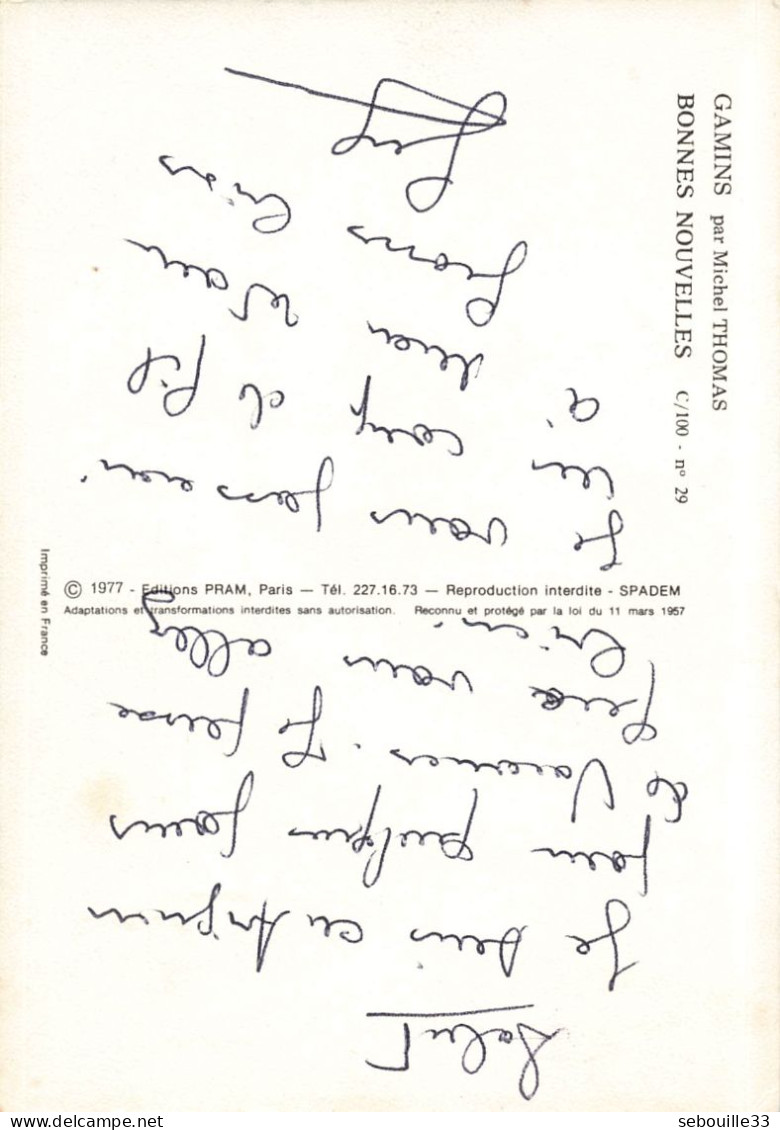 GAMINS par Michel THOMAS
BONNES NOUVELLES C/100 - n° 29
© 1977 - Editions PRAM, Paris — Tél. 227.16.73 — Reproduction interdite - SPADEM
Adaptations et transformations interdites sans autorisation. Reconnu et protégé par la loi du 11 mars 1957
Imprimé en France
Salut
Je suis en Avignon
pour quelques jours
de Vacances. Je pense
que vous allez
bien.
Je vous passerai
un coup de fil
à mon retour
Gros bises
Delcampe.net
sebouille33